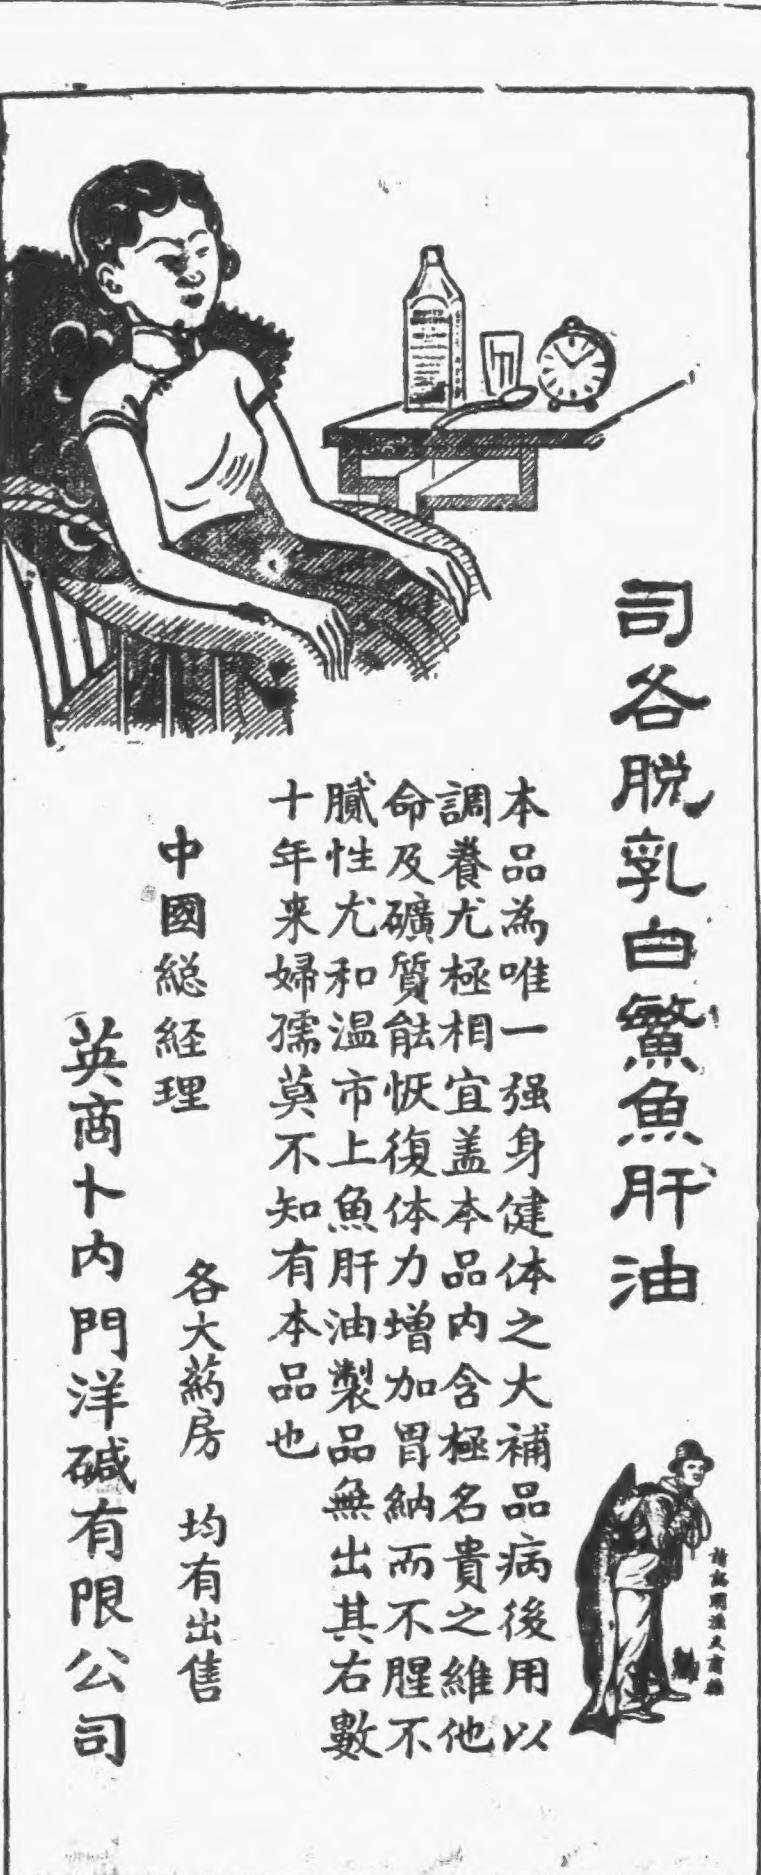 司各脱乳白鰵魚肝油
請認明漁夫商標
本品為唯一强身健体之大補品病後用以
調養尤極相宜盖本品内含極名貴之維他
命及礦質能恢復体力增加胃納而不腥不
膩性尤和温市上魚肝油製品無出其右數
十年来婦孺莫不知有本品也
各大葯房 均有出售
中國総経理
英商卜内門洋碱有限公司